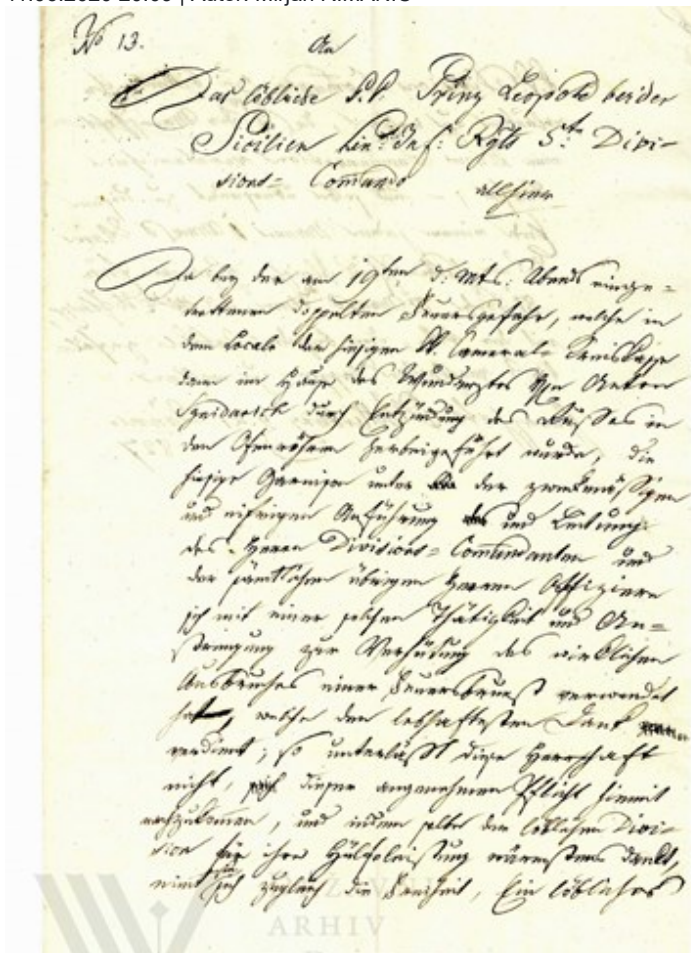 No 13.
An
Das löbliche k.k. Prinz Leopold beider
Sicilien Lin: Inf: Rgts 5te Divi-
sions= Commando
allhier
Da bey der am 19ten d: Mts: Abends einge=
trettenen doppelten Feuersgefahr, welche in
dem Locale der hiesigen k.k. Cameral=
dann im Hause des Wundarztes Anton
durch Entzündung des Rußes in
den Ofenröhren herbeigeführt wurde, die
hiesige Garnison unter der zweckmässigen
und eifrigen Anführung und Leitung
des Herrn Divisions= Commandanten und
der sämtlichen übrigen Herren Offiziere
sich mit einer solchen Thätigkeit und An=
strengung zur Verhütung des wirklichen
Ausbruches einer Feuersbrunst verwendet
hat, welche den lebhaftesten Dank
verdient; so unterläßt diese Herrschaft
nicht, dieser angenehmen Pflicht hiemit
nachzukommen, und indem selbe der löblichen Divi-
sion für ihre Hülfeleistung wärmstens dankt,
nimt sich zugleich die Freiheit, Ein löbliches
ARHIV